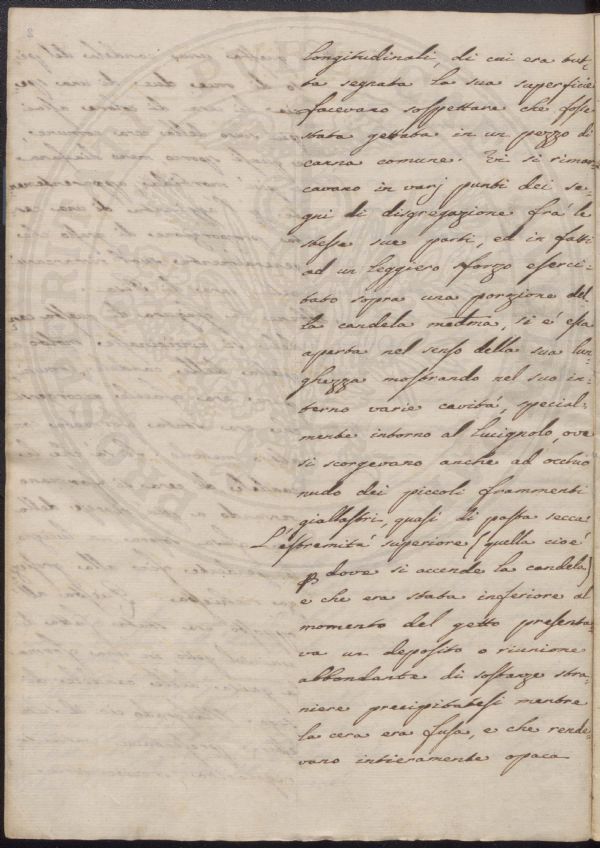 longitudinali, di cui era tut-
ta segnata la sua superficie
facevano sospettare che fosse
stata gettata in un pezzo di
canna comune. Vi si rimar-
cavano in varj punti dei se-
gni di disgregazione frà le
stesse sue parti, ed in fatti
ad un leggiero sforzo eserci-
tato sopra una porzione del
la candela medma, si è essa
aperta nel senso della sua lun-
ghezza mostrando nel suo in-
terno varie cavità, special-
mente intorno al lucignolo, ove
si scorgevano anche ad occhio
nudo dei piccoli frammenti
giallastri, quasi di pasta secca
L'estremità superiore (quella cioè
dove si accende la candela)
e che era stata inferiore al
momento del getto presenta-
va un deposito o riunione
abbondante di sostanze stra-
niere precipitatesi mentre
la cera era fusa, e che rende-
vano intieramente opaca